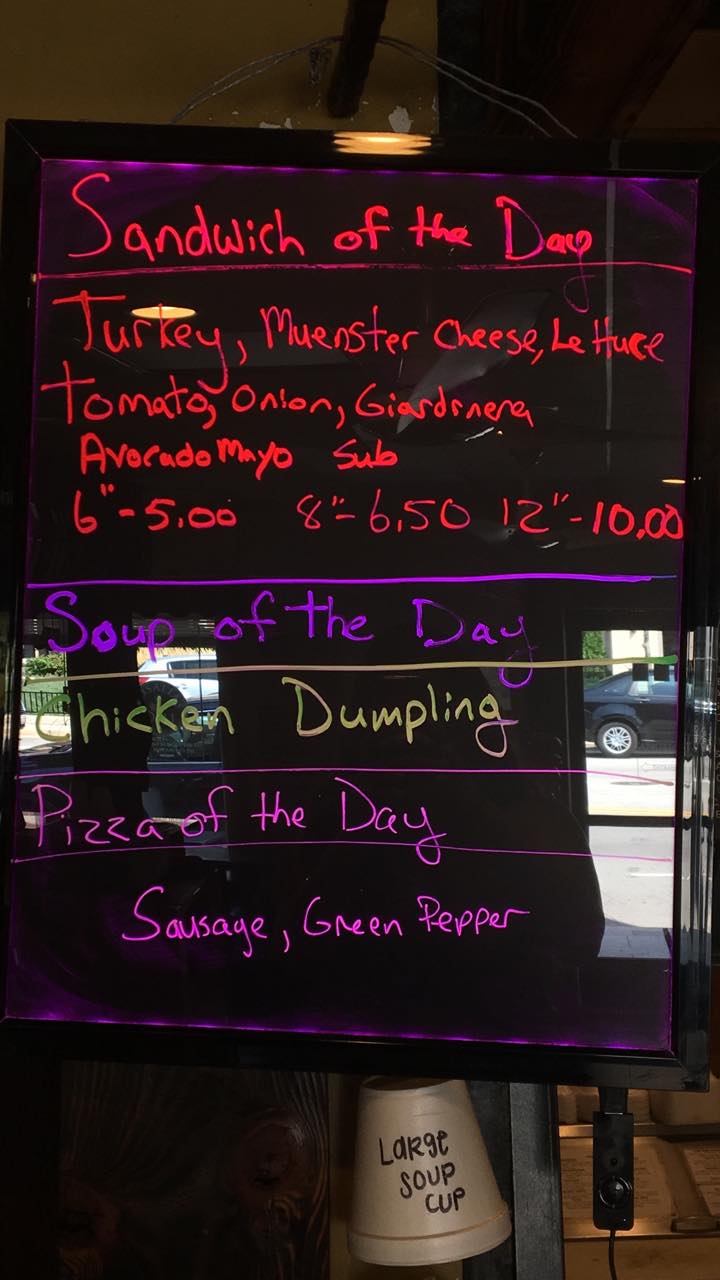 Sandwich of the Day
Turkey, Muenster Cheese, Lettuce
Tomato, Onion, Giardinera
Avocado Mayo Sub
6"-5.00 8"-6.50 12"-10.00
Soup of the Day
Chicken Dumpling
Pizza of the Day
Sausage, Green Pepper
Large
Soup
Cup